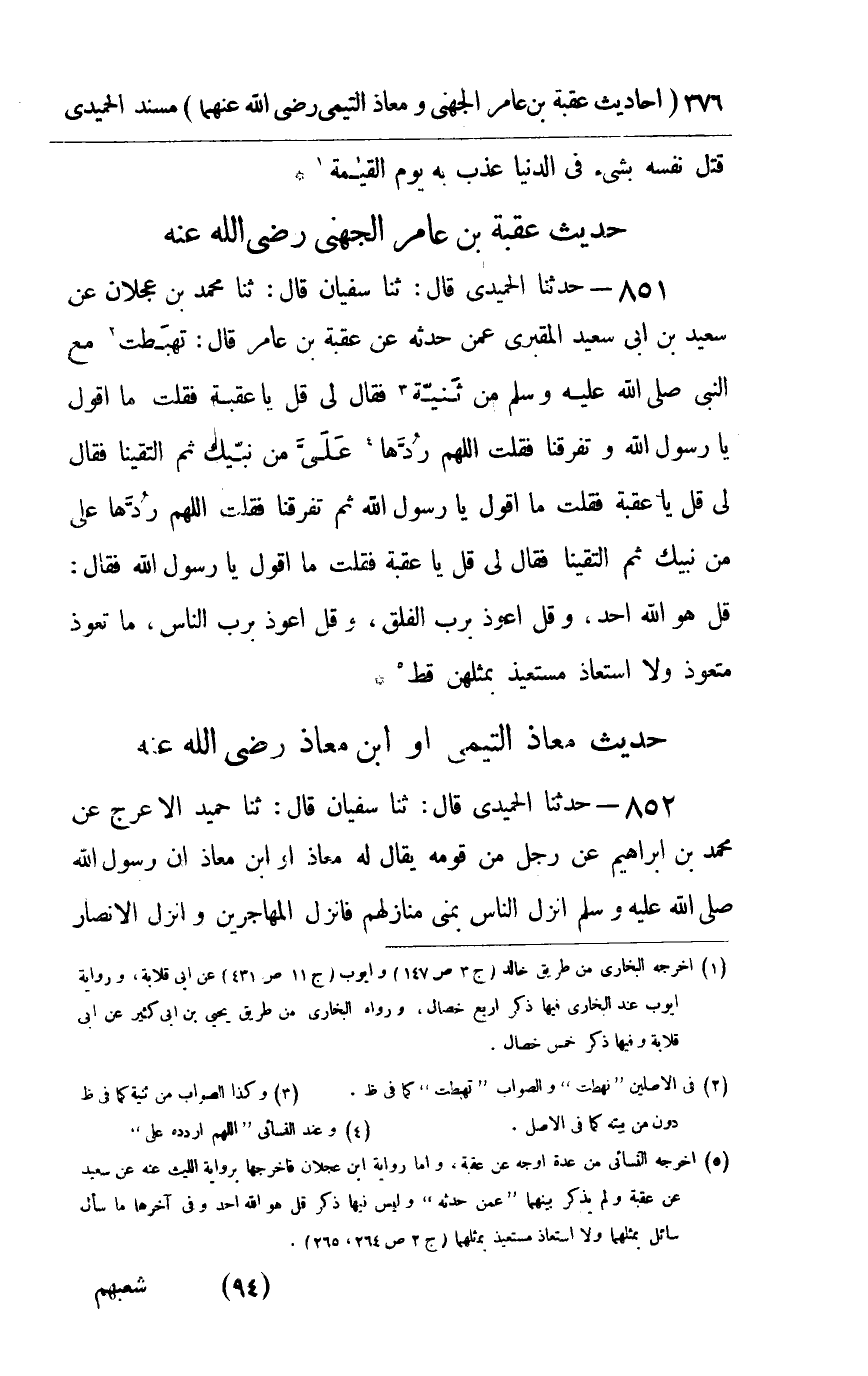 ٣٧٦ ( احاديث عقبة بن عامر الجهنى و معاذ التيمى رضى الله عنهما ) مسند الحميدى
قتل نفسه بشىء فى الدنيا عذب به يوم القيٰمة ١ *
حديث عقبة بن عامر الجهنى رضى الله عنه
٨٥١ – حدثنا الحميدى قال : ثنا سفيان قال : ثنا محمد بن عجلان عن
سعيد بن ابى سعيد المقبرى عمن حدثه عن عقبة بن عامر قال : تهبّطت ٢ مع
النبى صلى الله عليه و سلم من ثَنيّة ٣ فقال لى قل يا عقبة فقلت ما اقول
يا رسول الله و تفرقنا فقلت اللهم رُدَّها ٤ عَلَىَّ من نبّيك ثم التقينا فقال
لى قل يا عقبة فقلت ما اقول يا رسول الله ثم تفرقنا فقلت اللهم رُدَّها على
من نبيك ثم التقينا فقال لى قل يا عقبة فقلت ما اقول يا رسول الله فقال :
قل هو الله احد ، و قل اعوذ برب الفلق ، و قل اعوذ برب الناس ، ما تعوذ
متعوذ ولا استعاذ مستعيذ بمثلهن قط ٥ *
حديث معاذ التيمى او ابن معاذ رضى الله عنه
٨٥٢ – حدثنا الحميدى قال : ثنا سفيان قال : ثنا حميد الاعرج عن
محمد بن ابراهيم عن رجل من قومه يقال له معاذ او ابن معاذ ان رسول الله
صلى الله عليه و سلم انزل الناس بمنى منازلهم فانزل المهاجرين و انزل الانصار
(١) اخرجه البخارى من طريق خالد ( ج ٣ ص ١٤٧ ) و ايوب ( ج ١١ ص ٤٣١ ) عن ابى قلابة ، و رواية
ايوب عند البخارى فيها ذكر اربع خصال ، و رواه البخارى من طريق يحيى بن ابى كثير عن ابى
قلابة و فيها ذكر خمس خصال .
(٢) فى الاصلين ”نهطت“ و الصواب ”تهبطت“ كما فى ظ . (٣) و كذا الصواب من ثنية كما فى ظ
دون من بيته كما فى الاصل . (٤) و عند النسائى ”اللهم اردده على“
(٥) اخرجه النسائى من عدة اوجه عن عقبة ، و اما رواية ابن عجلان فاخرجها برواية الليث عنه عن سعيد
عن عقبة و لم يذكر بينهما ”عمن حدثه“ و ليس فيها ذكر قل هو الله احد و فى آخرها ما سأل
سائل بمثلهما ولا استعاذ مستعيذ بمثلهما ( ج ٢ ص ٢٦٤ ، ٢٦٥ ) .
(٩٤) شعبهم